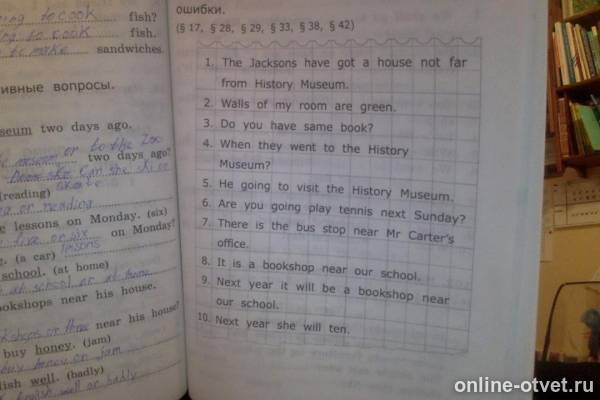 ing to cook fish?
ing to cook fish.
to make sandwiches.
ивные вопросы.
seum two days ago.
museum or to the Zoo
two days ago?
(reading)
or reading
e lessons on Monday. (six)
five or six on Monday?
g. (a car) lessons
school. (at home)
at school or at home
ookshops near his house.
kshops or three near his house?
buy honey. (jam)
buy honey or jam
lish well. (badly)
well or badly
ошибки.
(§ 17, § 28, § 29, § 33, § 38, § 42)
1. The Jacksons have got a house not far
from History Museum.
2. Walls of my room are green.
3. Do you have same book?
4. When they went to the History
Museum?
5. He going to visit the History Museum.
6. Are you going play tennis next Sunday?
7. There is the bus stop near Mr Carter's
office.
8. It is a bookshop near our school.
9. Next year it will be a bookshop near
our school.
10. Next year she will ten.
online-otvet.ru